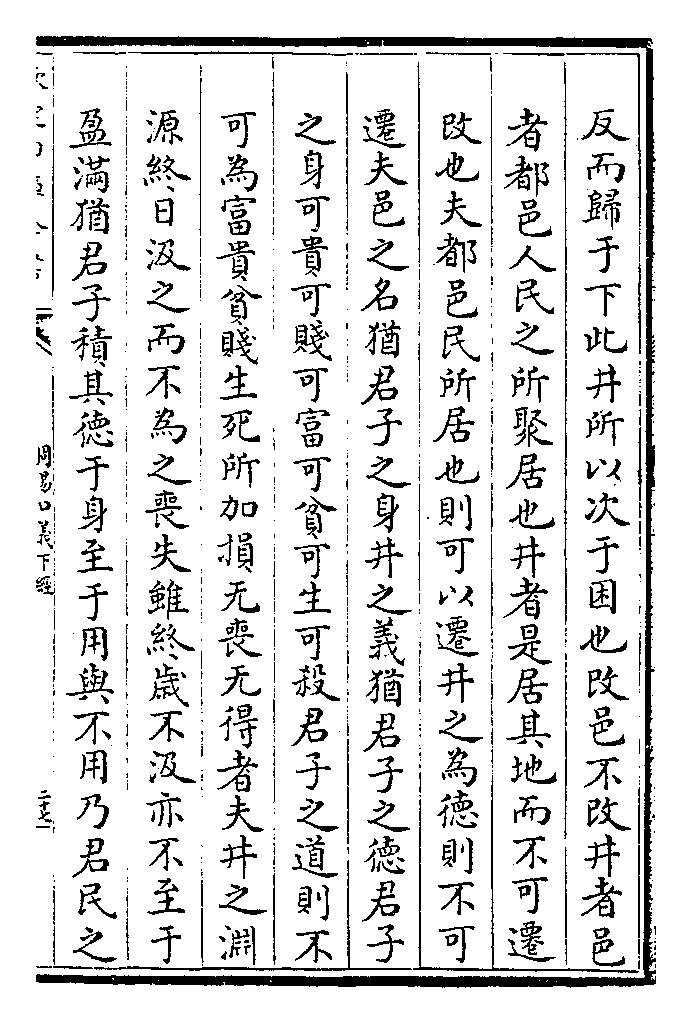 反而歸于下此井所以次于困也改邑不改井者邑
者都邑人民之所聚居也井者是居其地而不可遷
改也夫都邑民所居也則可以遷井之為德則不可
遷夫邑之名猶君子之身井之義猶君子之德君子
之身可貴可賤可富可貧可生可殺君子之道則不
可為富貴貧賤生死所加損无喪无得者夫井之淵
源終日汲之而不為之喪失雖終歲不汲亦不至于
盈滿猶君子積其德于身至于用與不用乃君民之
周易口義下經